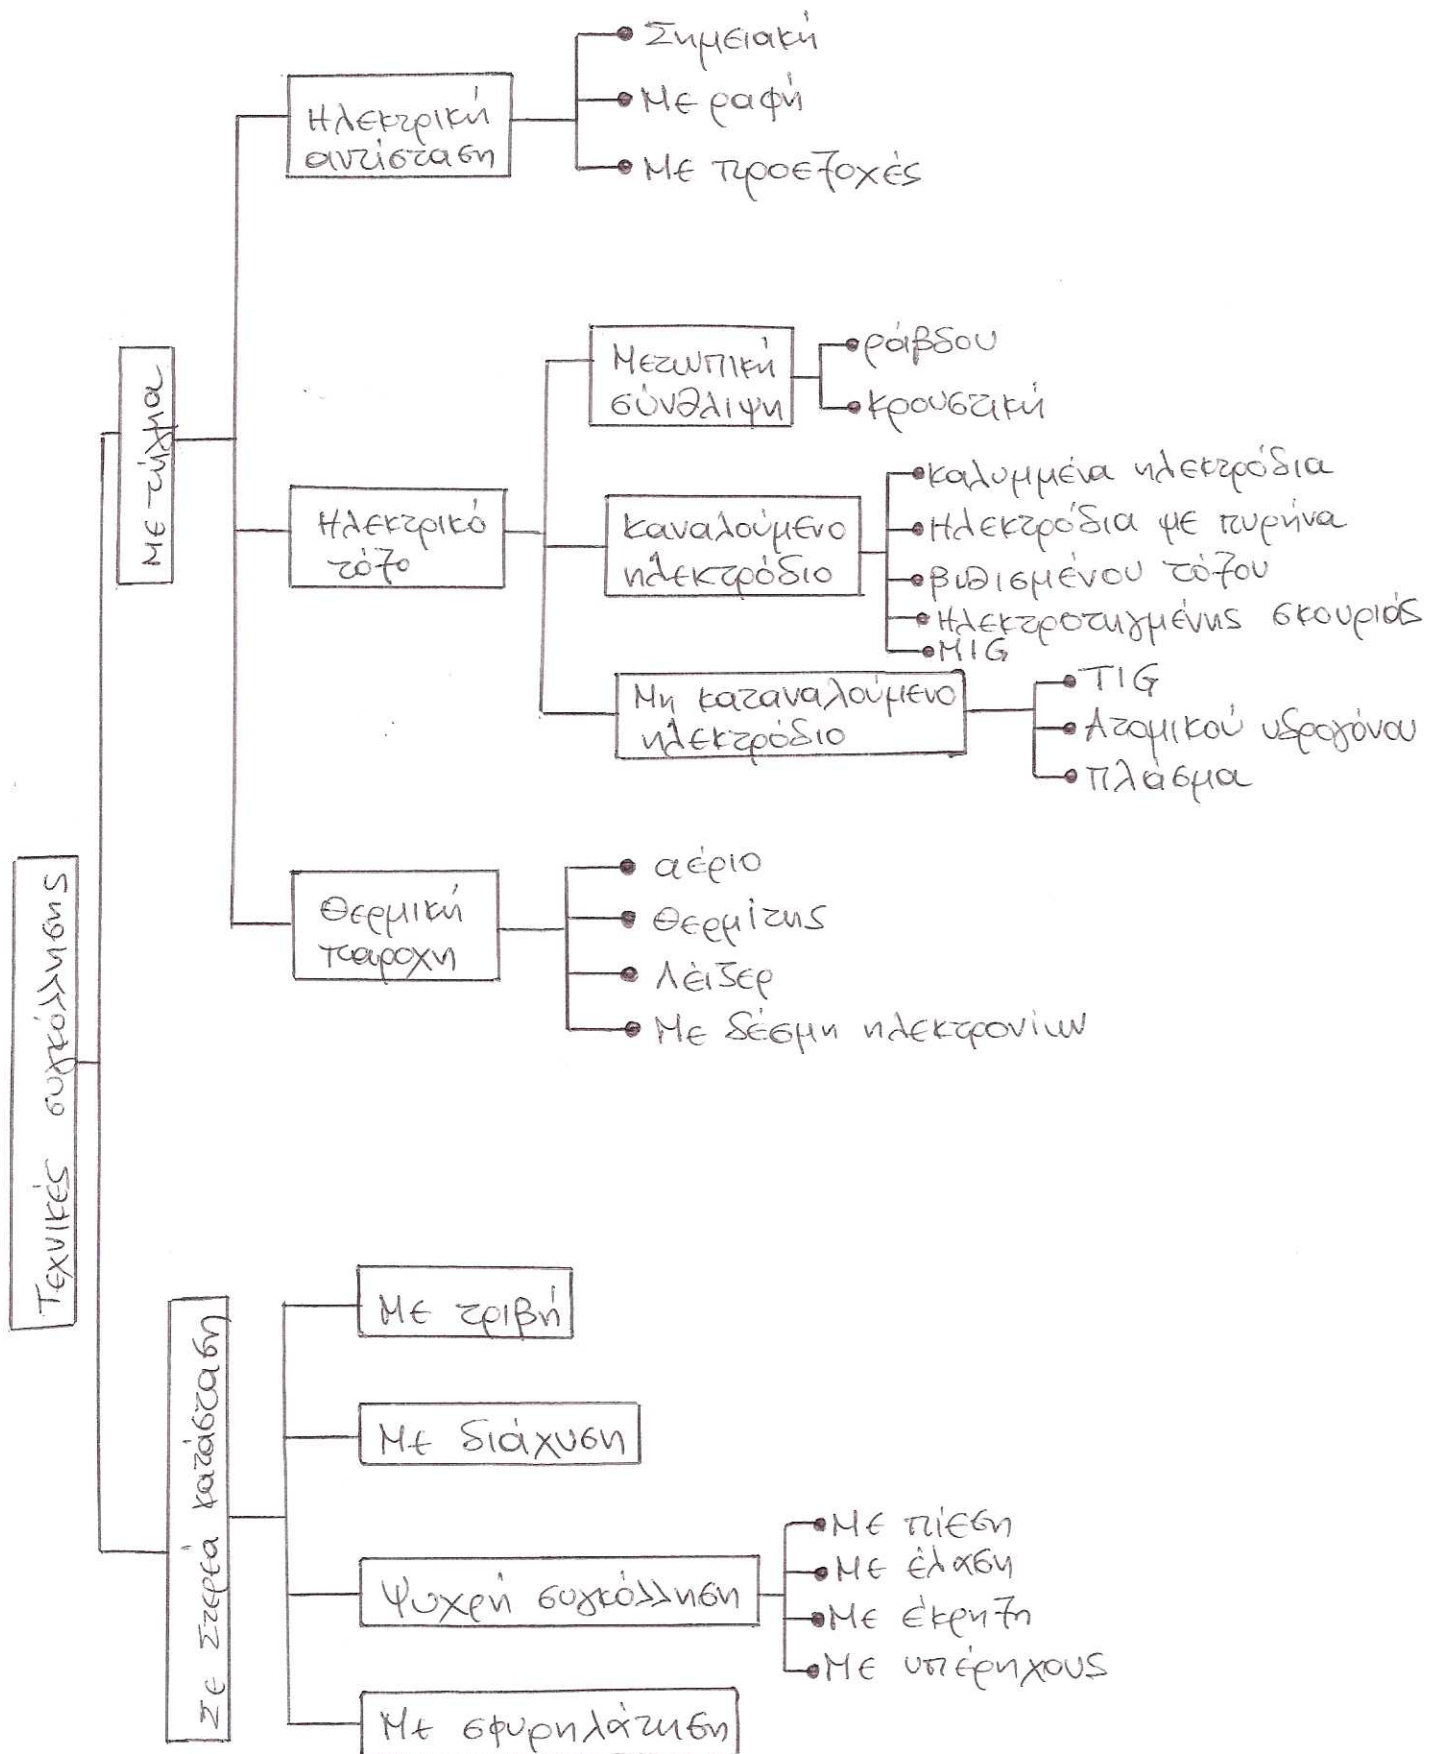 Σημειακή
Ηλεκτρική
αντίσταση
Με ραφή
Με προεξοχές
Με τήγμα
Μετωπική
σύνθλιψη
ράβδου
κρουστική
Ηλεκτρικό
τόξο
καναλούμενο
ηλεκτρόδιο
καλυμμένα ηλεκτρόδια
Ηλεκτρόδια με πυρήνα
βυθισμένου τόξου
Ηλεκτροτηγμένης σκουριάς
MIG
Μη καταναλούμενο
ηλεκτρόδιο
TIG
Ατομικού υδρογόνου
πλάσμα
Τεχνικές συγκόλλησης
Θερμική
παροχη
αέριο
Θερμίτης
Λέιζερ
Με δέσμη ηλεκτρονίων
Σε Στερεά κατάσταση
Με τριβή
Με διάχυση
Ψυχρή συγκόλληση
Με πίεση
Με έλαση
Με έκρηξη
Με υπέρηχους
Με σφυρηλάτηση